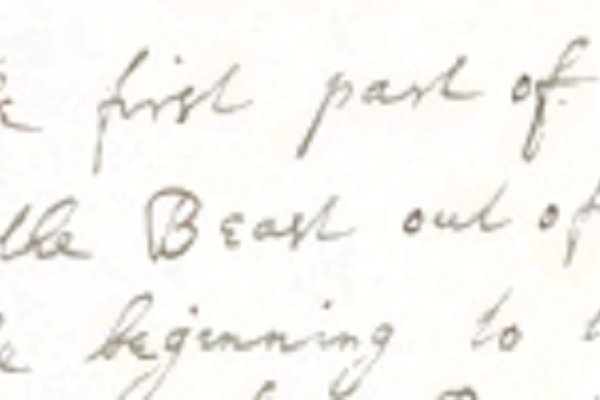 first part of
the Beast out of
beginning to